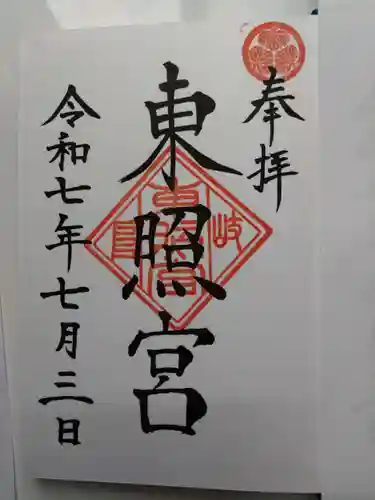 奉拝
東照宮
令和七年七月三日